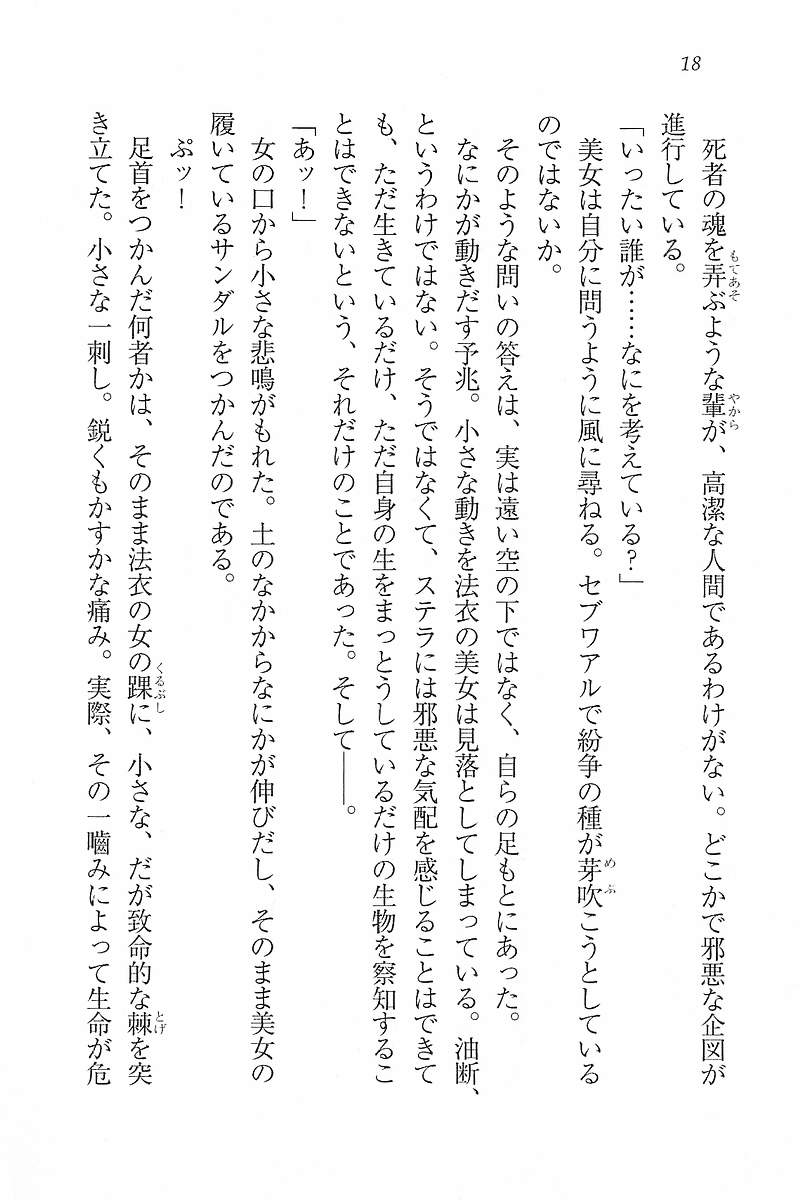 18
死者の魂を弄ぶような輩が、高潔な人間であるわけがない。どこかで邪悪な企図が
進行している。
「いったい誰が……なにを考えている？」
美女は自分に問うように風に尋ねる。セブワアルで紛争の種が芽吹こうとしている
のではないか。
そのような問いの答えは、実は遠い空の下ではなく、自らの足もとにあった。
なにかが動きだす予兆。小さな動きを法衣の美女は見落としてしまっている。油断、
というわけではない。そうではなくて、ステラには邪悪な気配を感じることはできて
も、ただ生きているだけ、ただ自身の生をまっとうしているだけの生物を察知するこ
とはできないという、それだけのことであった。そして――。
「あッ！」
女の口から小さな悲鳴がもれた。土のなかからなにかが伸びだし、そのまま美女の
履いているサンダルをつかんだのである。
ぷッ！
足首をつかんだ何者かは、そのまま法衣の女の踝に、小さな、だが致命的な棘を突
き立てた。小さな一刺し。鋭くもかすかな痛み。実際、その一嚙みによって生命が危